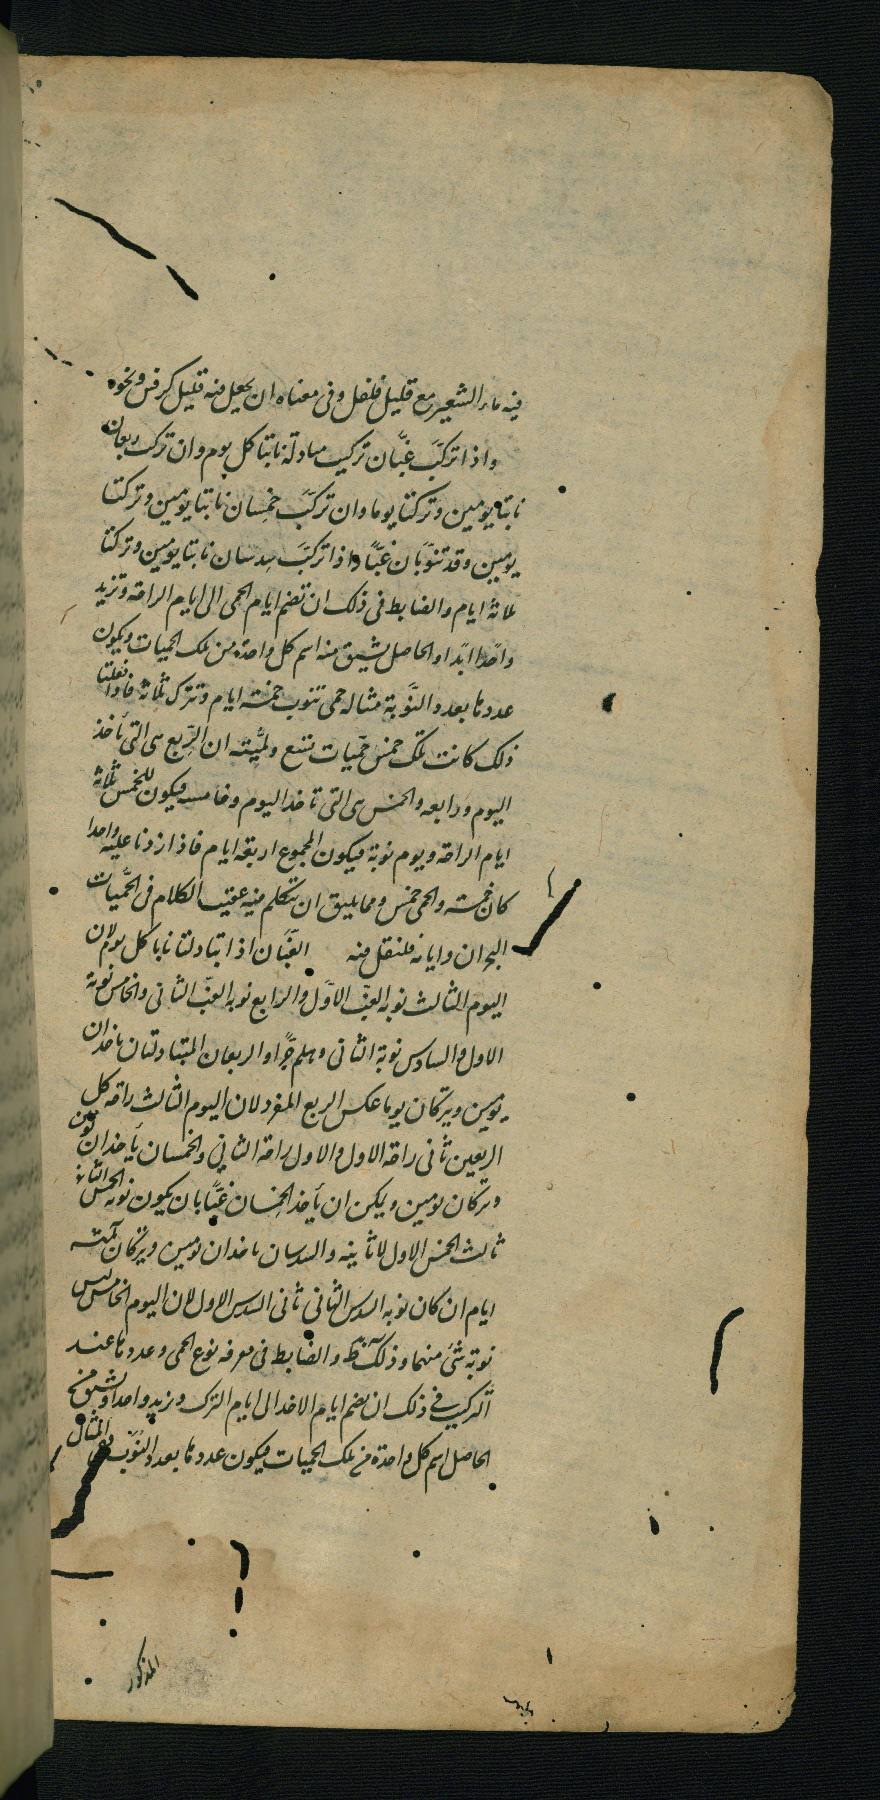 فيه ماء الشعير مع قليل فلفل وفى معناه ان يجعل فيه قليل كرفس ونحوه
واذا تركبّ غبّان تركيب مبادلة نابتا كل يوم وان تركب ربعان
نابتا يومين وتركتا يوما وان تركبّ خمسان نابتا يومين وتركتا
يومين وقد تنوبان غبّا واذا تركبّ سدسان نابتا يومين وتركتا
ثلاثة ايام والضابط فى ذلك ان تضم ايام الحمى الى ايام الراحة وتزيد
واحدا ابدا والحاصل يشتق منه اسم كل واحدة من تلك الحميات ويكون
عددها بعدد النّوبة مثاله حمى تنوب خمسة ايام وتترك ثلاثة فاذا فعلنا
ذلك كانت تلك خمس حمّيات تسع ولميّته ان الربع هى التى تأخذ
اليوم ورابعه والخمس هى التى تاخذ اليوم وخامسه فيكون للخمس ثلاثة
ايام الراحة ويوم نوبة فيكون المجموع اربعة ايام فاذا زدنا عليه واحدا
كان خمسة والحمى خمس ومما يليق ان نتكلم فيه عقيب الكلام فى الحمّيات
البحران وايامه فلنقل فيه الغبّان اذا تبادلتا نابا كل يوم لان
اليوم الثالث نوبة الغبّ الاوّل والرابع نوبة الغبّ الثانى والخامس نوبة
الاول والسادس نوبة الثانى وهلم جرّا والربعان المتبادلتان ياخذان
يومين ويتركان يوما عكس الربع المفرد لان اليوم الثالث راحة كل
الربعين ثانى راحة الاول والاول راحة الثانى والخمسان يأخذان يومين
ويتركان يومين ويمكن ان يأخذ الخمسان غبّا بان يكون نوبة الخمس الثانية
ثالث الخمس الاول لا ثانيه والسدسان ياخذان يومين ويتركان ثلثة
ايام ان كان نوبة السدس الثانى ثانى السدس الاول لان اليوم الخامس ليس
نوبة شئ منهما وذلك والضابط فى معرفة نوع الحمى وعددها عند
التركيب فى ذلك ان يضم ايام الاخذ الى ايام الترك ويزيد واحدا ويشتق من
الحاصل اسم كل واحدة من تلك الحميات فيكون عددها بعدد النوب ففى المثال
المذكور